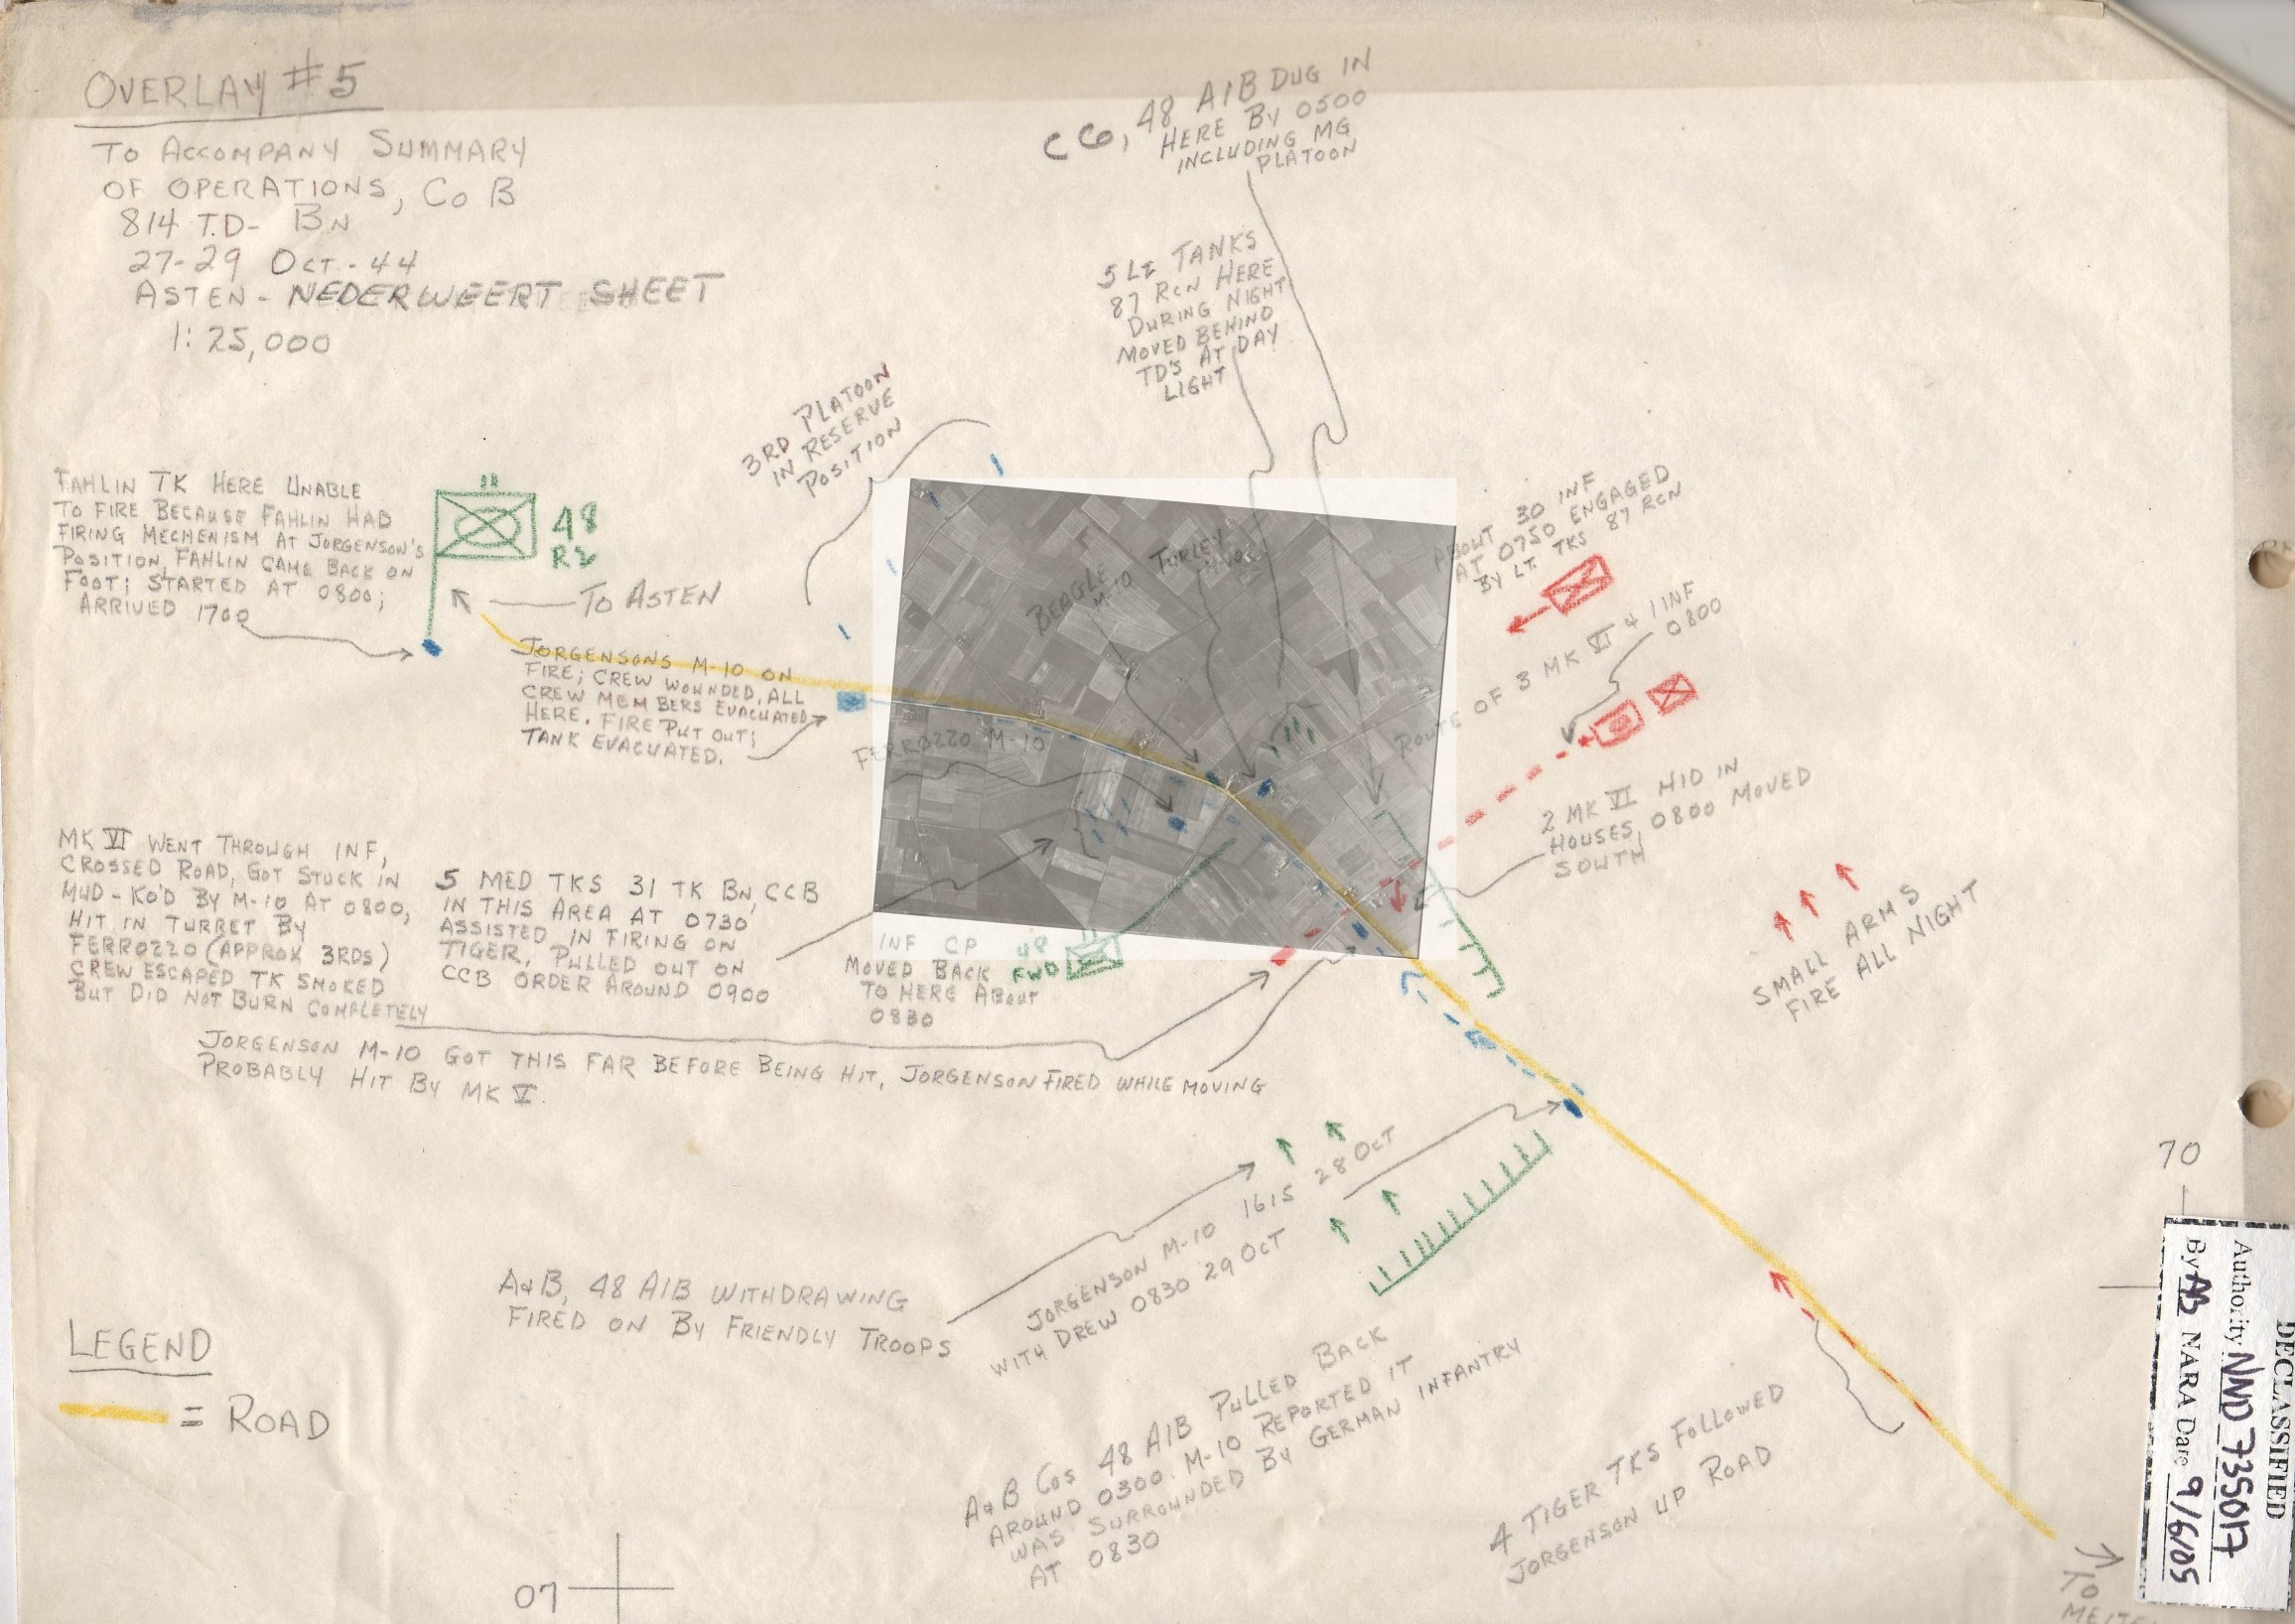 OVERLAY #5
TO ACCOMPANY SUMMARY
OF OPERATIONS, CO B
814 T.D- BN
27-29 OCT.-44
ASTEN - NEDERWEERT SHEET
1: 25,000
C CO, 48 AIB DUG IN
HERE BY 0500
INCLUDING MG
PLATOON
5 LT TANKS
87 RCN HERE
DURING NIGHT
MOVED BEHIND
TD'S AT DAY
LIGHT
3RD PLATOON
IN RESERVE
POSITION
FAHLIN TK HERE UNABLE
TO FIRE BECAUSE FAHLIN HAD
FIRING MECHENISM AT JORGENSON'S
POSITION, FAHLIN CAME BACK ON
FOOT; STARTED AT 0800;
ARRIVED 1700
48
R2
TO ASTEN
JORGENSONS M-10 ON
FIRE; CREW WOUNDED. ALL
CREW MEMBERS EVACUATED
HERE. FIRE PUT OUT;
TANK EVACUATED.
BEAGLE
M-10
TURLEY
M-10
FERROZZO M-10
ABOUT 30 INF
AT 0750 ENGAGED
BY LT. TKS 87 RCN
ROUTE OF 3 MK VI & 1 INF
0800
2 MK VI HID IN
HOUSES, 0800 MOVED
SOUTH
SMALL ARMS
FIRE ALL NIGHT
MK VI WENT THROUGH INF,
CROSSED ROAD, GOT STUCK IN
MUD - KO'D BY M-10 AT 0800,
HIT IN TURRET BY
FERROZZO (APPROX 3RDS)
CREW ESCAPED TK SMOKED
BUT DID NOT BURN COMPLETELY
5 MED TKS 31 TK BN, CCB
IN THIS AREA AT 0730
ASSISTED IN FIRING ON
TIGER, PULLED OUT ON
CCB ORDER AROUND 0900
INF CP
MOVED BACK
TO HERE ABOUT
0830
48
FWD
JORGENSON M-10 GOT THIS FAR BEFORE BEING HIT, JORGENSON FIRED WHILE MOVING
PROBABLY HIT BY MK V.
JORGENSON M-10 1615 28 OCT
WITH DREW 0830 29 OCT
A&B, 48 AIB WITHDRAWING
FIRED ON BY FRIENDLY TROOPS
A&B COS 48 AIB PULLED BACK
AROUND 0300. M-10 REPORTED IT
WAS SURROUNDED BY GERMAN INFANTRY
AT 0830
4 TIGER TKS FOLLOWED
JORGENSON UP ROAD
LEGEND
= ROAD
07
70
TO
DECLASSIFIED
Authority NND 735017
By AB NARA Date 9/6/05